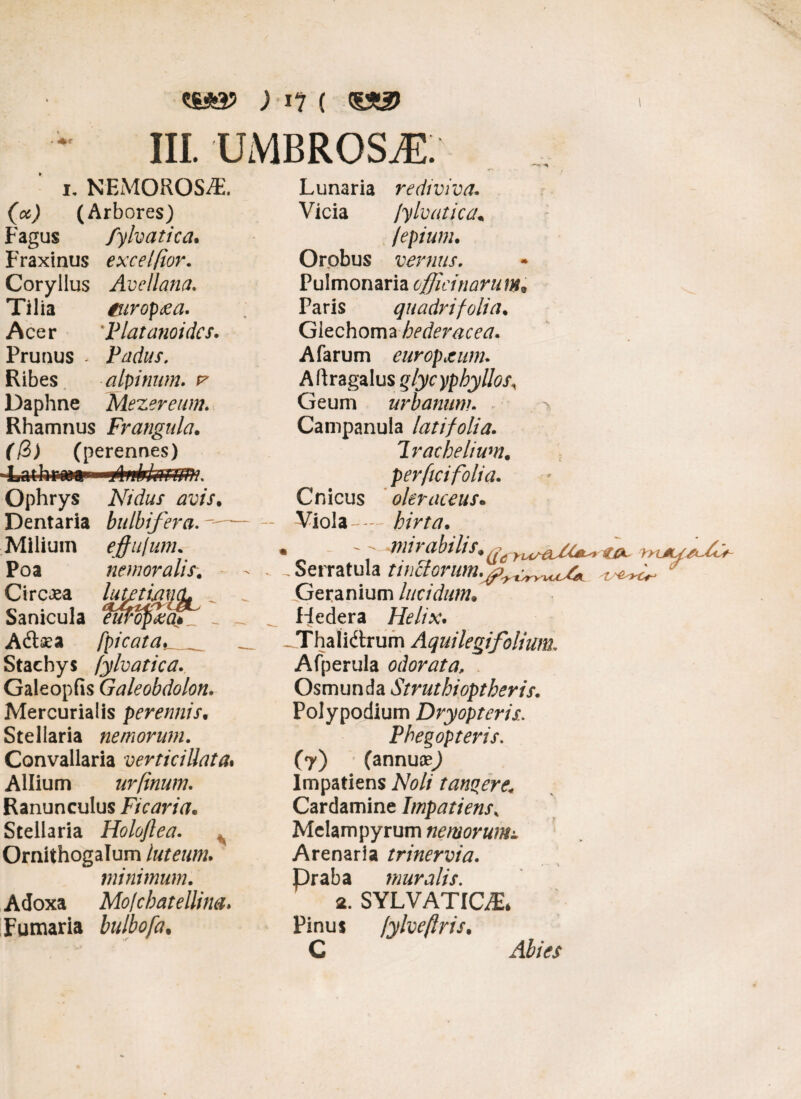 ) 17 (
III. UMBROSÆ.
1. NEMOROSÆ.
(α) (Arbores)
Fagus ſylvatica.
Fraxinus excelſior.
Coryllus Avellana.
Tilia europæa.
Acer Platanoides.
Prunus Padus.
Ribes alpinum.
Daphne Mezereum.
Rhamnus Frangula.
(β) (perennes)
Lathræa Anblatum.
Ophrys Nidus avis.
Dentaria bulbifera.
Milium effuſum.
Poa nemoralis.
Circæa lutetiana.
Sanicula europæa.
Actæa ſpicata.
Stachys ſylvatica.
Galeopſis Galeobdolon.
Mercurialis perennis.
Stellaria nemorum.
Convallaria verticillata.
Allium urſinum.
Ranunculus Ficaria.
Stellaria Holoſtea.
Ornithogalum luteum.
minimum.
Adoxa Moſchatellina.
Fumaria bulboſa.
Lunaria rediviva.
Vicia ſylvatica.
ſepium.
Orobus vernus.
Pulmonaria officinarum.
Paris quadrifolia.
Glechoma hederacea.
Aſarum europæum.
Aſtragalus glycyphyllos.
Geum urbanum.
Campanula latifolia.
Trachelium.
perſicifolia.
Cnicus oleraceus.
Viola hirta.
mirabilis.
Serratula tinctorum.
Geranium lucidum.
Hedera Helix.
Thalictrum Aquilegifolium.
Aſperula odorata.
Osmunda Struthioptheris.
Polypodium Dryopteris.
Phegopteris.
(γ) (annuæ)
Impatiens Noli tangere.
Cardamine Impatiens.
Melampyrum nemorum.
Arenaria trinervia.
Draba muralis.
2. SYLVATICÆ.
Pinus ſylveſtris.
C Abies